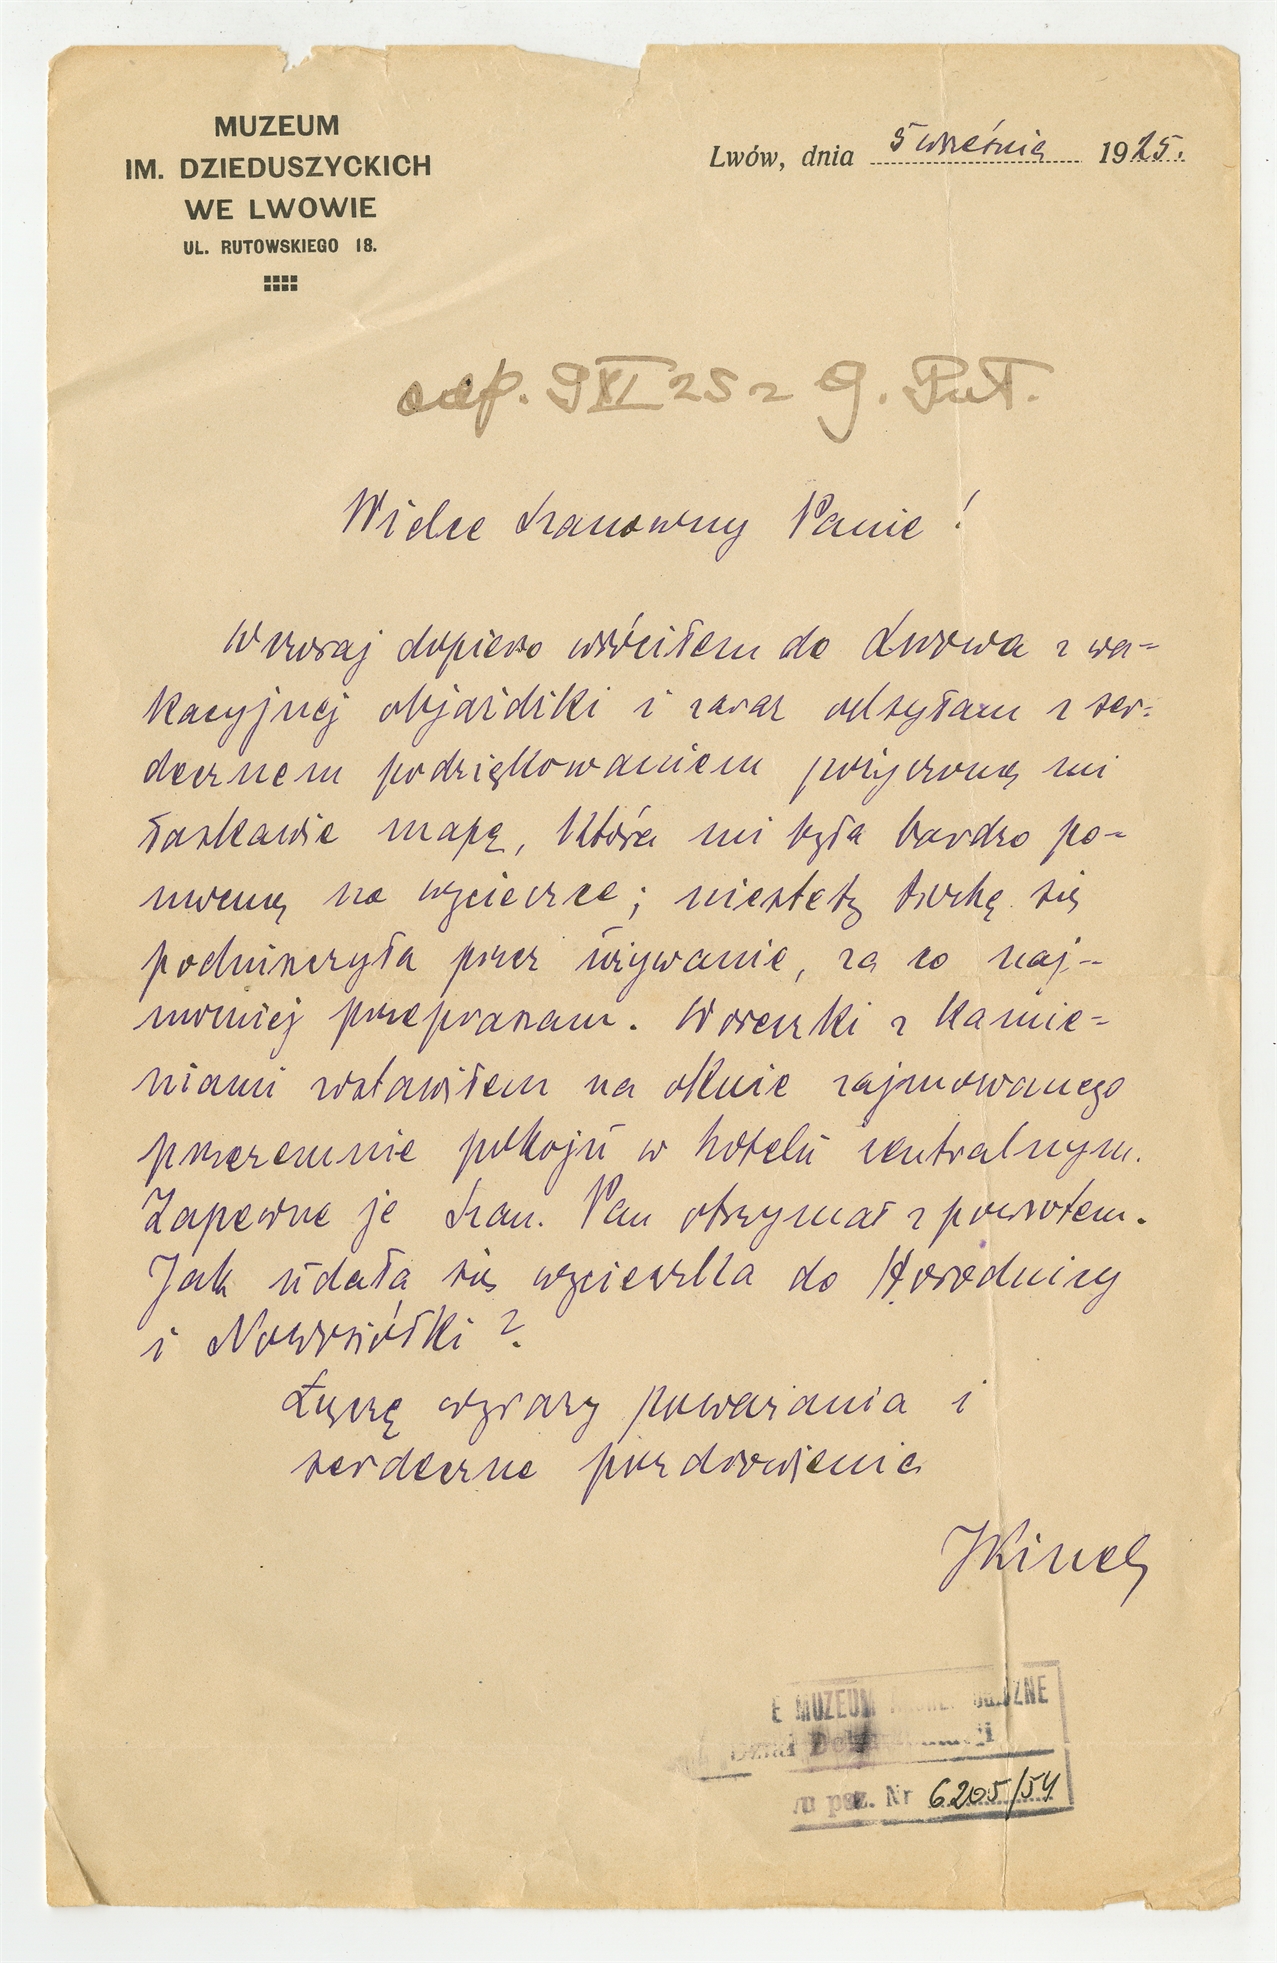 MUZEUM
IM. DZIEDUSZYCKICH
WE LWOWIE
UL. RUTOWSKIEGO 18.
Lwów, dnia 5 września 1925.
odp. 9 XI 25 z
Wielce Szanowny Panie!
Wczoraj dopiero wróciłem do Lwowa z wa-
kacyjnej objażdżki i zaraz odsyłam z ser-
decznem podziękowaniem pożyczoną mi
łaskawie mapę, która mi była bardzo po-
mocną na wycieczce; niestety trochę się
podniszczyła przez używanie, za co naj-
mocniej przepraszam. Woreczki z kamie-
niami zostawiłem na oknie zajmowanego
przezemnie pokoju w hotelu centralnym.
Zapewne je Szan. Pan otrzymał z powrotem.
Jak udała się wycieczka do Horodnicy
i Nowosiółki?
Łączę wyrazy poważania i
serdeczne pozdrowienia
JKinel
E MUZEUM ARCHEOLOGICZNE
Dział Dokumentacji
poz. Nr 6205/54